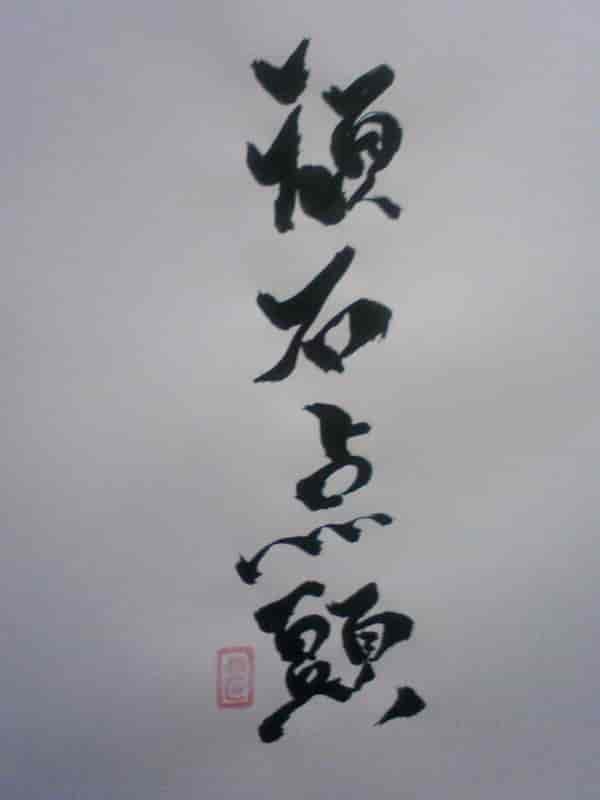 頑石点頭